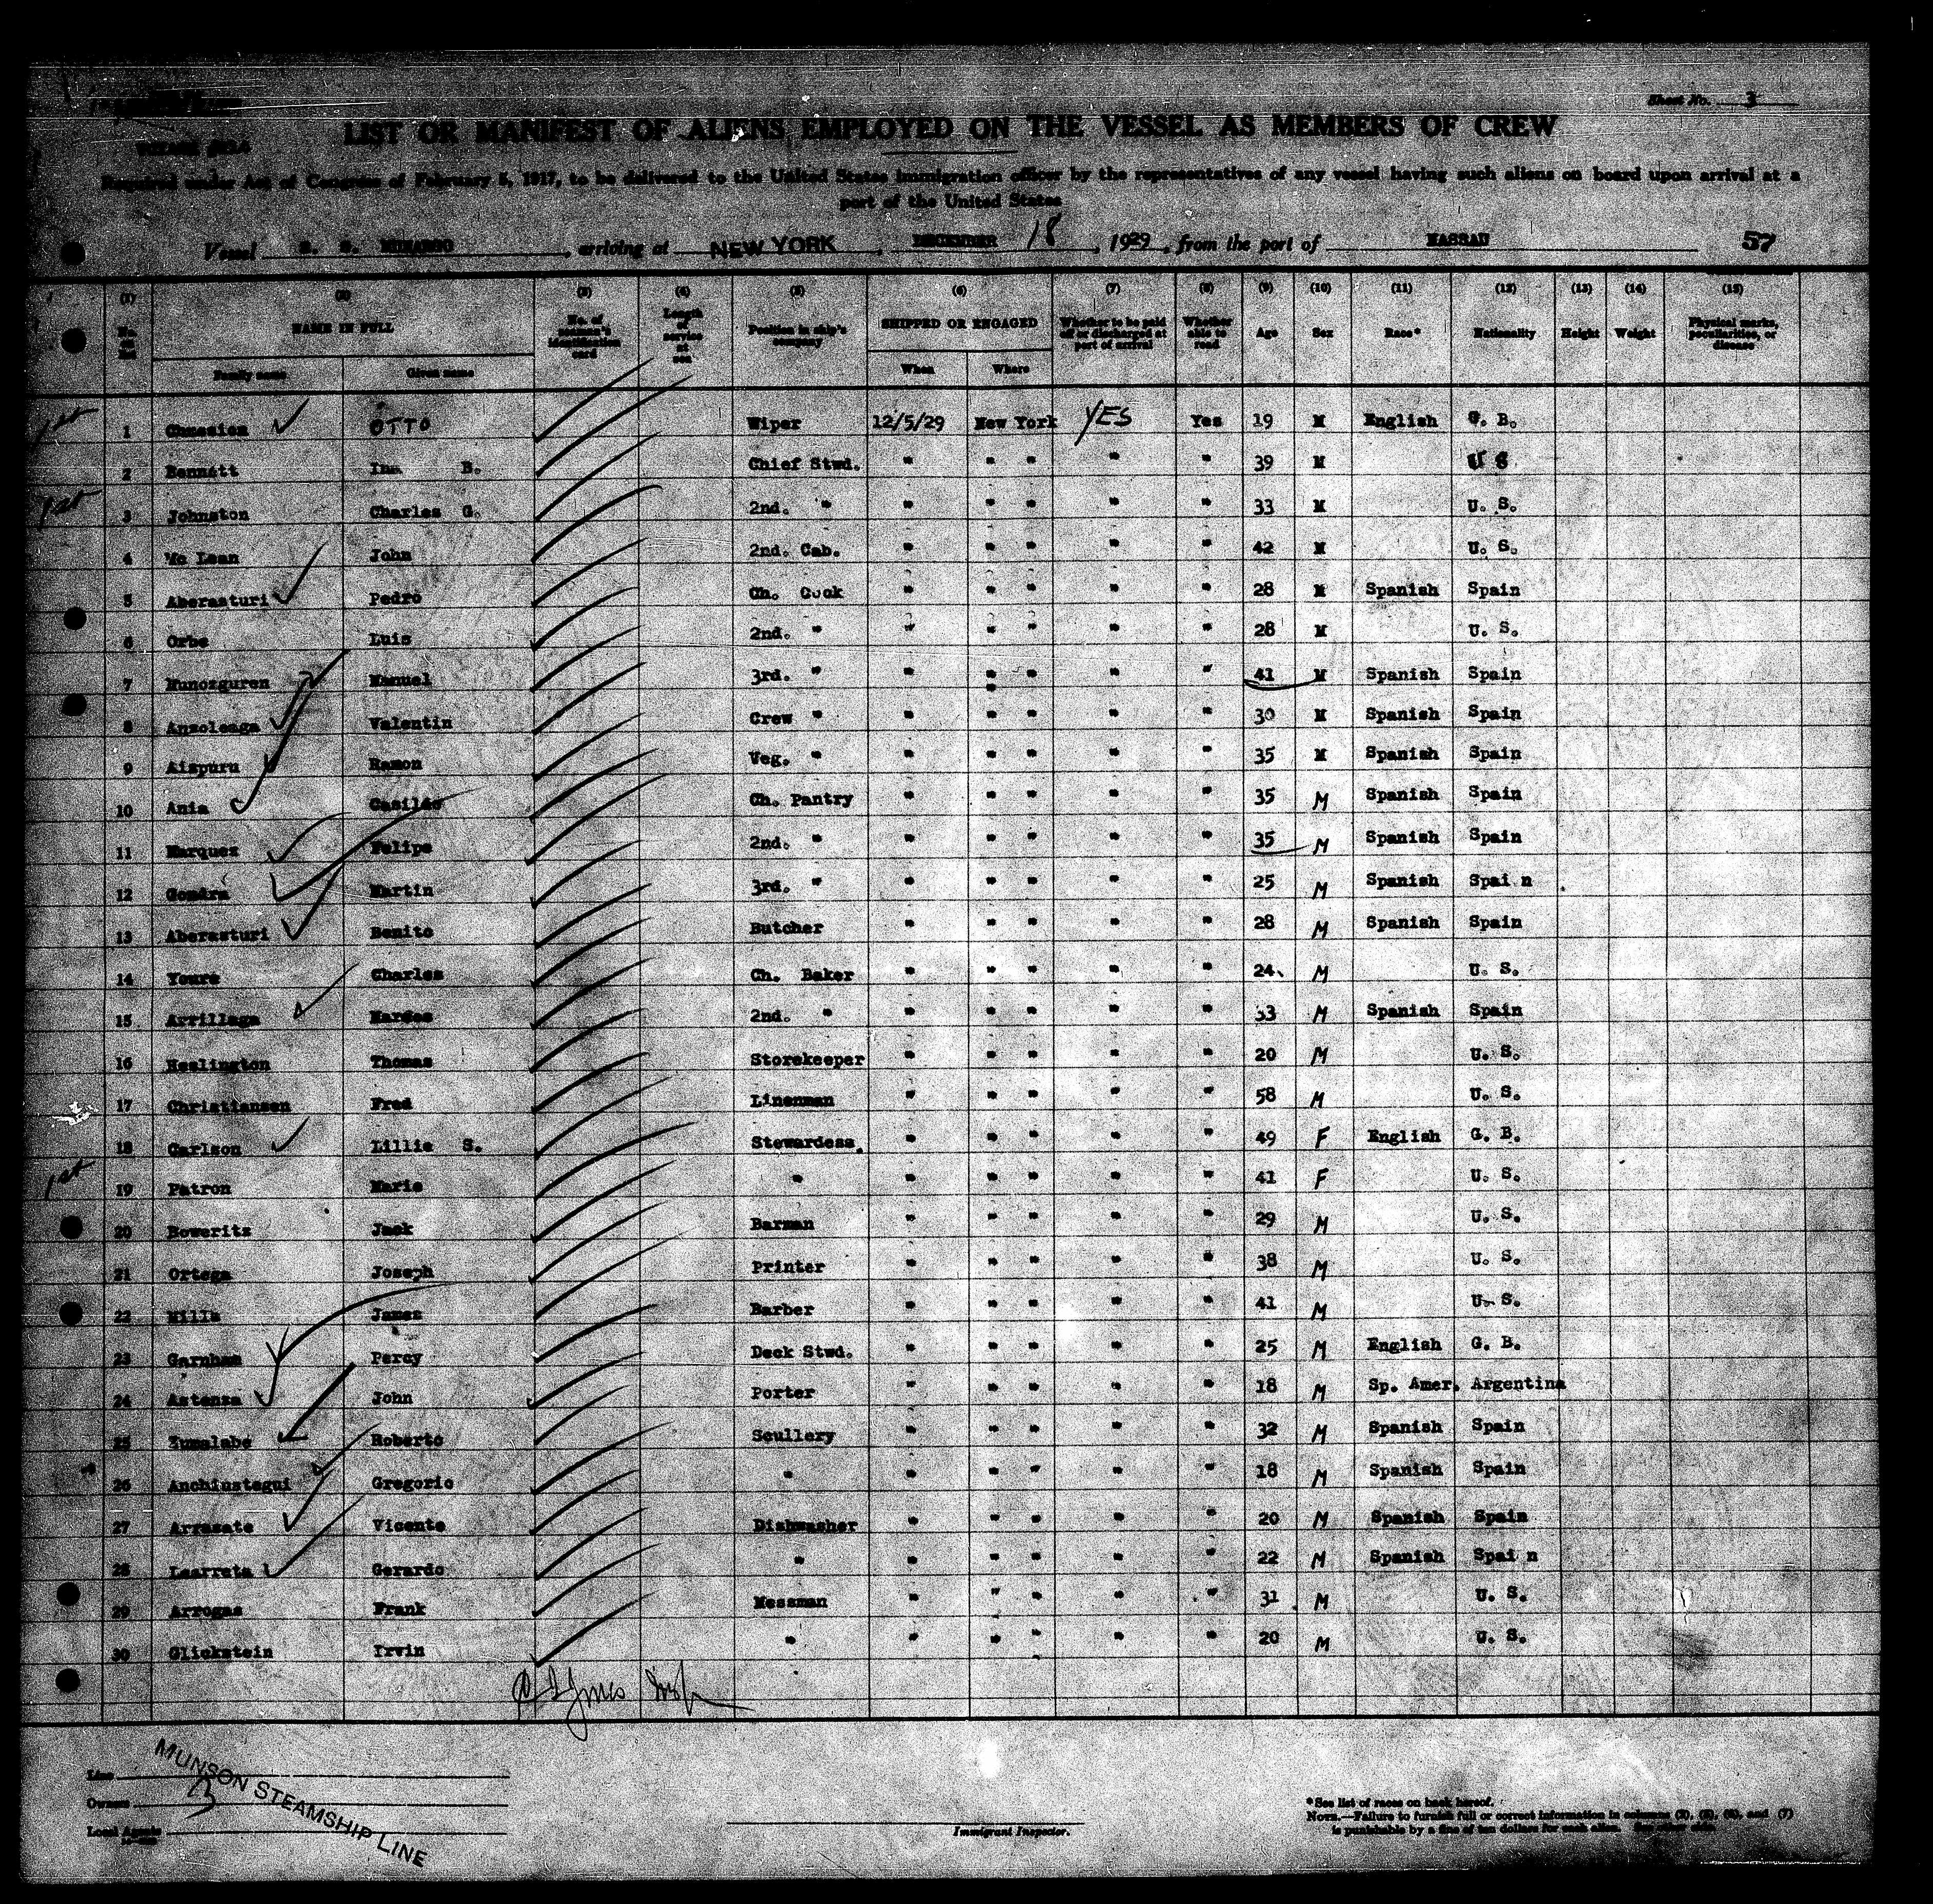 Sheet No. 3
LIST OR MANIFEST OF ALIENS EMPLOYED ON THE VESSEL AS MEMBERS OF CREW
Required under Act of Congress of February 5, 1917, to be delivered to the United States immigration officer by the representatives of any vessel having such aliens on board upon arrival at a
port of the United States
Vessel S. S. MUNARGO, arriving at NEW YORK, DECEMBER 18, 1929, from the port of NASSAU 57
(1) (2) (3) (4) (5) (6) (7) (8) (9) (10) (11) (12) (13) (14) (15)
No. on list NAME IN FULL No. of seaman's identification card Length of service at sea Position in ship's company SHIPPED OR ENGAGED Whether to be paid off or discharged at port of arrival Whether able to read Age Sex Race* Nationality Height Weight Physical marks, peculiarities, or disease
Family name Given name When Where
1st 1 OTTO Wiper 12/5/29 New York YES Yes 19 M English G. B.
2 Bennett Ina B. Chief Stwd. " " " " " 39 M U S
1st 3 Johnston Charles G. 2nd. " " " " " " 33 M U. S.
4 Mc Lean John 2nd. Cab. " " " " " 42 M U. S.
5 Aberasturi Pedro Ch. Cook " " " " " 28 M Spanish Spain
6 Orbe Luis 2nd. " " " " " " 28 M U. S.
7 Munozguren Manuel 3rd. " " " " " " 41 M Spanish Spain
8 Ansolenga Valentin Crew " " " " " " 30 M Spanish Spain
9 Aispuru Ramon Veg. " " " " " " 35 M Spanish Spain
10 Ania Casildo Ch. Pantry " " " " " 35 M Spanish Spain
11 Marquez Felipe 2nd. " " " " " " 35 M Spanish Spain
12 Martin 3rd. " " " " " " 25 M Spanish Spai n
13 Aberasturi Benito Butcher " " " " " 28 M Spanish Spain
14 Youre Charles Ch. Baker " " " " " 24 M U. S.
15 Arrillaga 2nd. " " " " " " 33 M Spanish Spain
16 Heslington Thomas Storekeeper " " " " " 20 M U. S.
17 Christiansen Fred Linenman " " " " " 58 M U. S.
18 Carlson Lillie S. Stewardess. " " " " " 49 F English G. B.
1st 19 Patron Marie " " " " " " 41 F U. S.
20 Bowerits Jack Barman " " " " " 29 M U. S.
21 Ortega Joseph Printer " " " " " 38 M U. S.
22 Mills James Barber " " " " " 41 M U. S.
23 Garnham Percy Deck Stwd. " " " " " 25 M English G. B.
24 Astenza John Porter " " " " " 18 M Sp. Amer. Argentina
25 Zumalabe Roberto Scullery " " " " " 32 M Spanish Spain
26 Anchiustegui Gregorio " " " " " " 18 M Spanish Spain
27 Arrasate Vicente Dishwasher " " " " " 20 M Spanish Spain
28 Learreta Gerardo " " " " " " 22 M Spanish Spai n
29 Arrogas Frank Messman " " " " " 31 M U. S.
30 Glickstein Irvin " " " " " " 20 M U. S.
Line
Owners
Local Agents
MUNSON STEAMSHIP LINE
3
Immigrant Inspector.
*See list of races on back hereof.
NOTE.—Failure to furnish full or correct information in columns (2), (5), (6), and (7)
is punishable by a fine of ten dollars for each alien. See other side